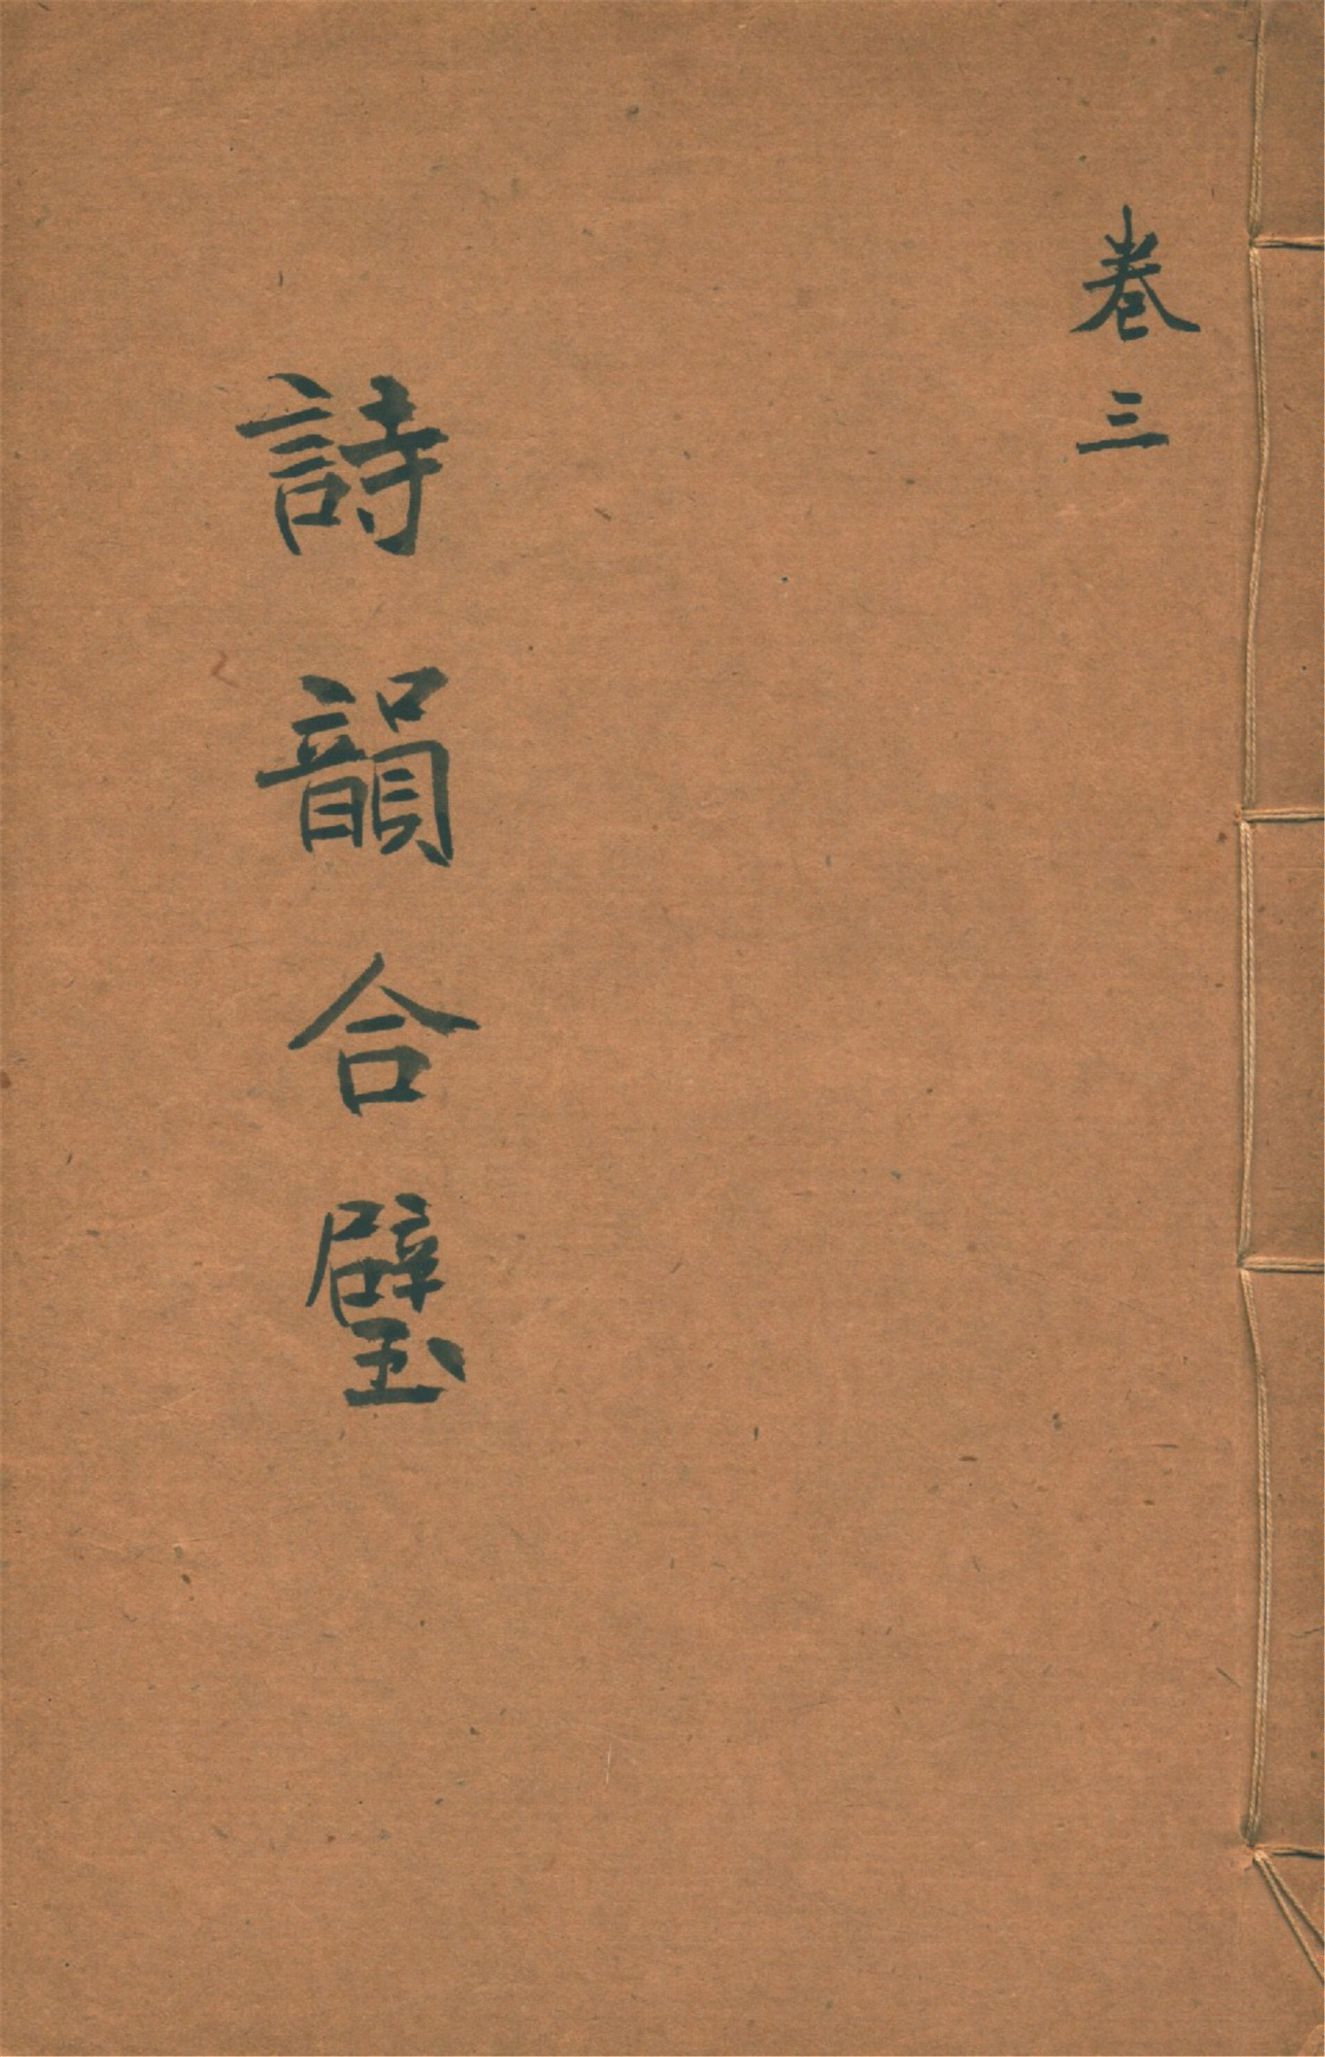 卷三
詩韻合璧